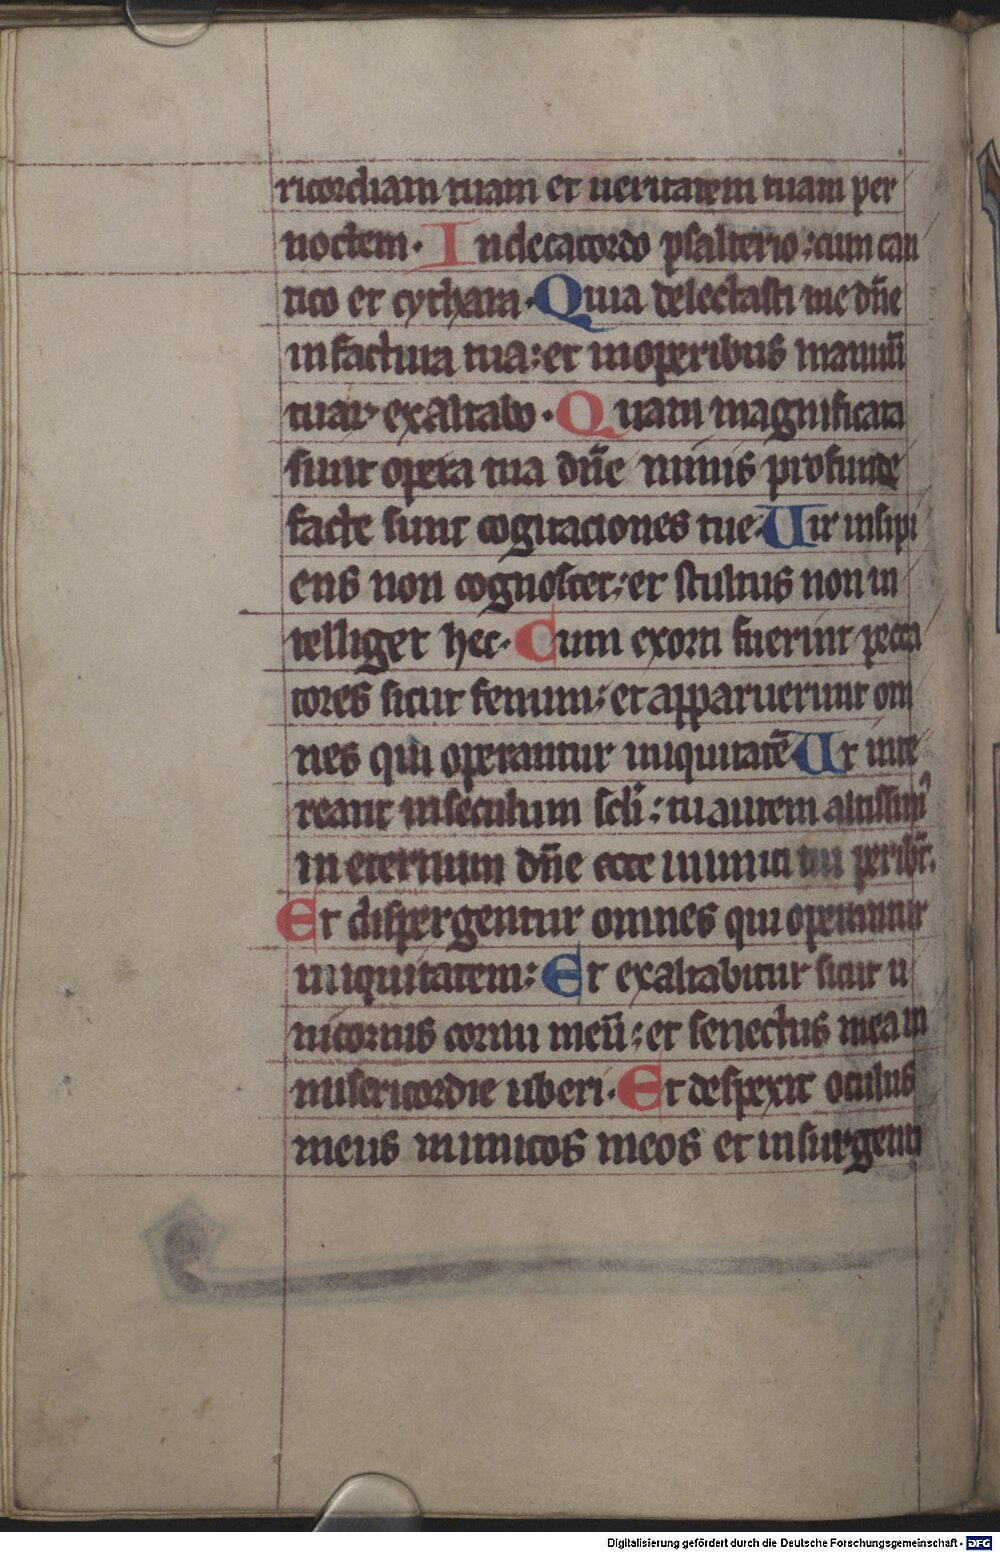 ricordiam tuam et ueritatem tuam per
noctem. In decacordo psalterio: cum can
tico et cythara. Quia delectasti me dn̄e
in factura tua: et in operibus manuū
tuaꝝ exaltabo. Quam magnificata
sunt opera tua dn̄e nimis profunde
facte sunt cogitaciones tue. Uir insipi
ens non cognoscet: et stultus non in
telliget hec. Cum exorti fuerint pecca
tores sicut fenum: et apparuerunt om
nes qui operantur iniquitatē Ut inte
reant in seculum scl̄i: tu autem altissimꝰ
in eternum dn̄e ecce inimici tui peribt̄.
Et dispergentur omnes qui operantur
iniquitatem: Et exaltabitur sicut u
nicornis cornu meū: et senectus mea in
misericordie uberi. Et despexit oculus
meus inimicos meos et insurgenti
Digitalisierung gefördert durch die Deutsche Forschungsgemeinschaft - DFG